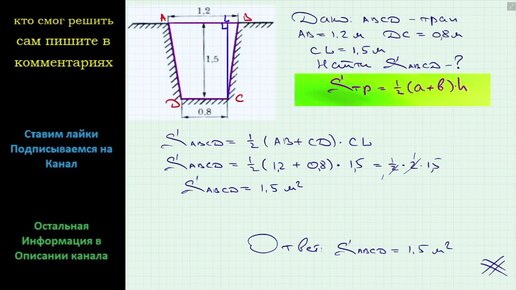 кто смог решить
сам пишите в
комментариях
Ставим лайки
Подписываемся на
Канал
Остальная
Информация в
Описании канала
A
1,2
L
B
1,5
D
C
0,8
Дано: ABCD - трап
AB = 1,2 м DC = 0,8 м
CL = 1,5 м
Найти SABCD - ?
Sтр = 1/2 (a + b) · h
SABCD = 1/2 (AB + CD) · CL
SABCD = 1/2 (1,2 + 0,8) · 1,5 = 1/2 · 2 · 1,5
SABCD = 1,5 м²
Ответ: SABCD = 1,5 м²